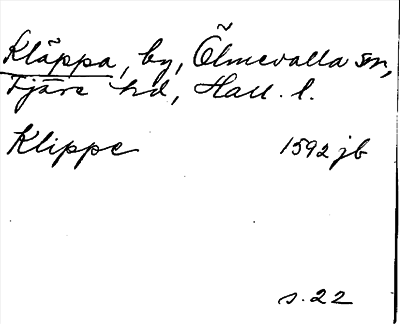 Kläppa, by, Ölmevalla sn,
Fjäre hd, Hall. l.
Klippe 1592 jb
s. 22